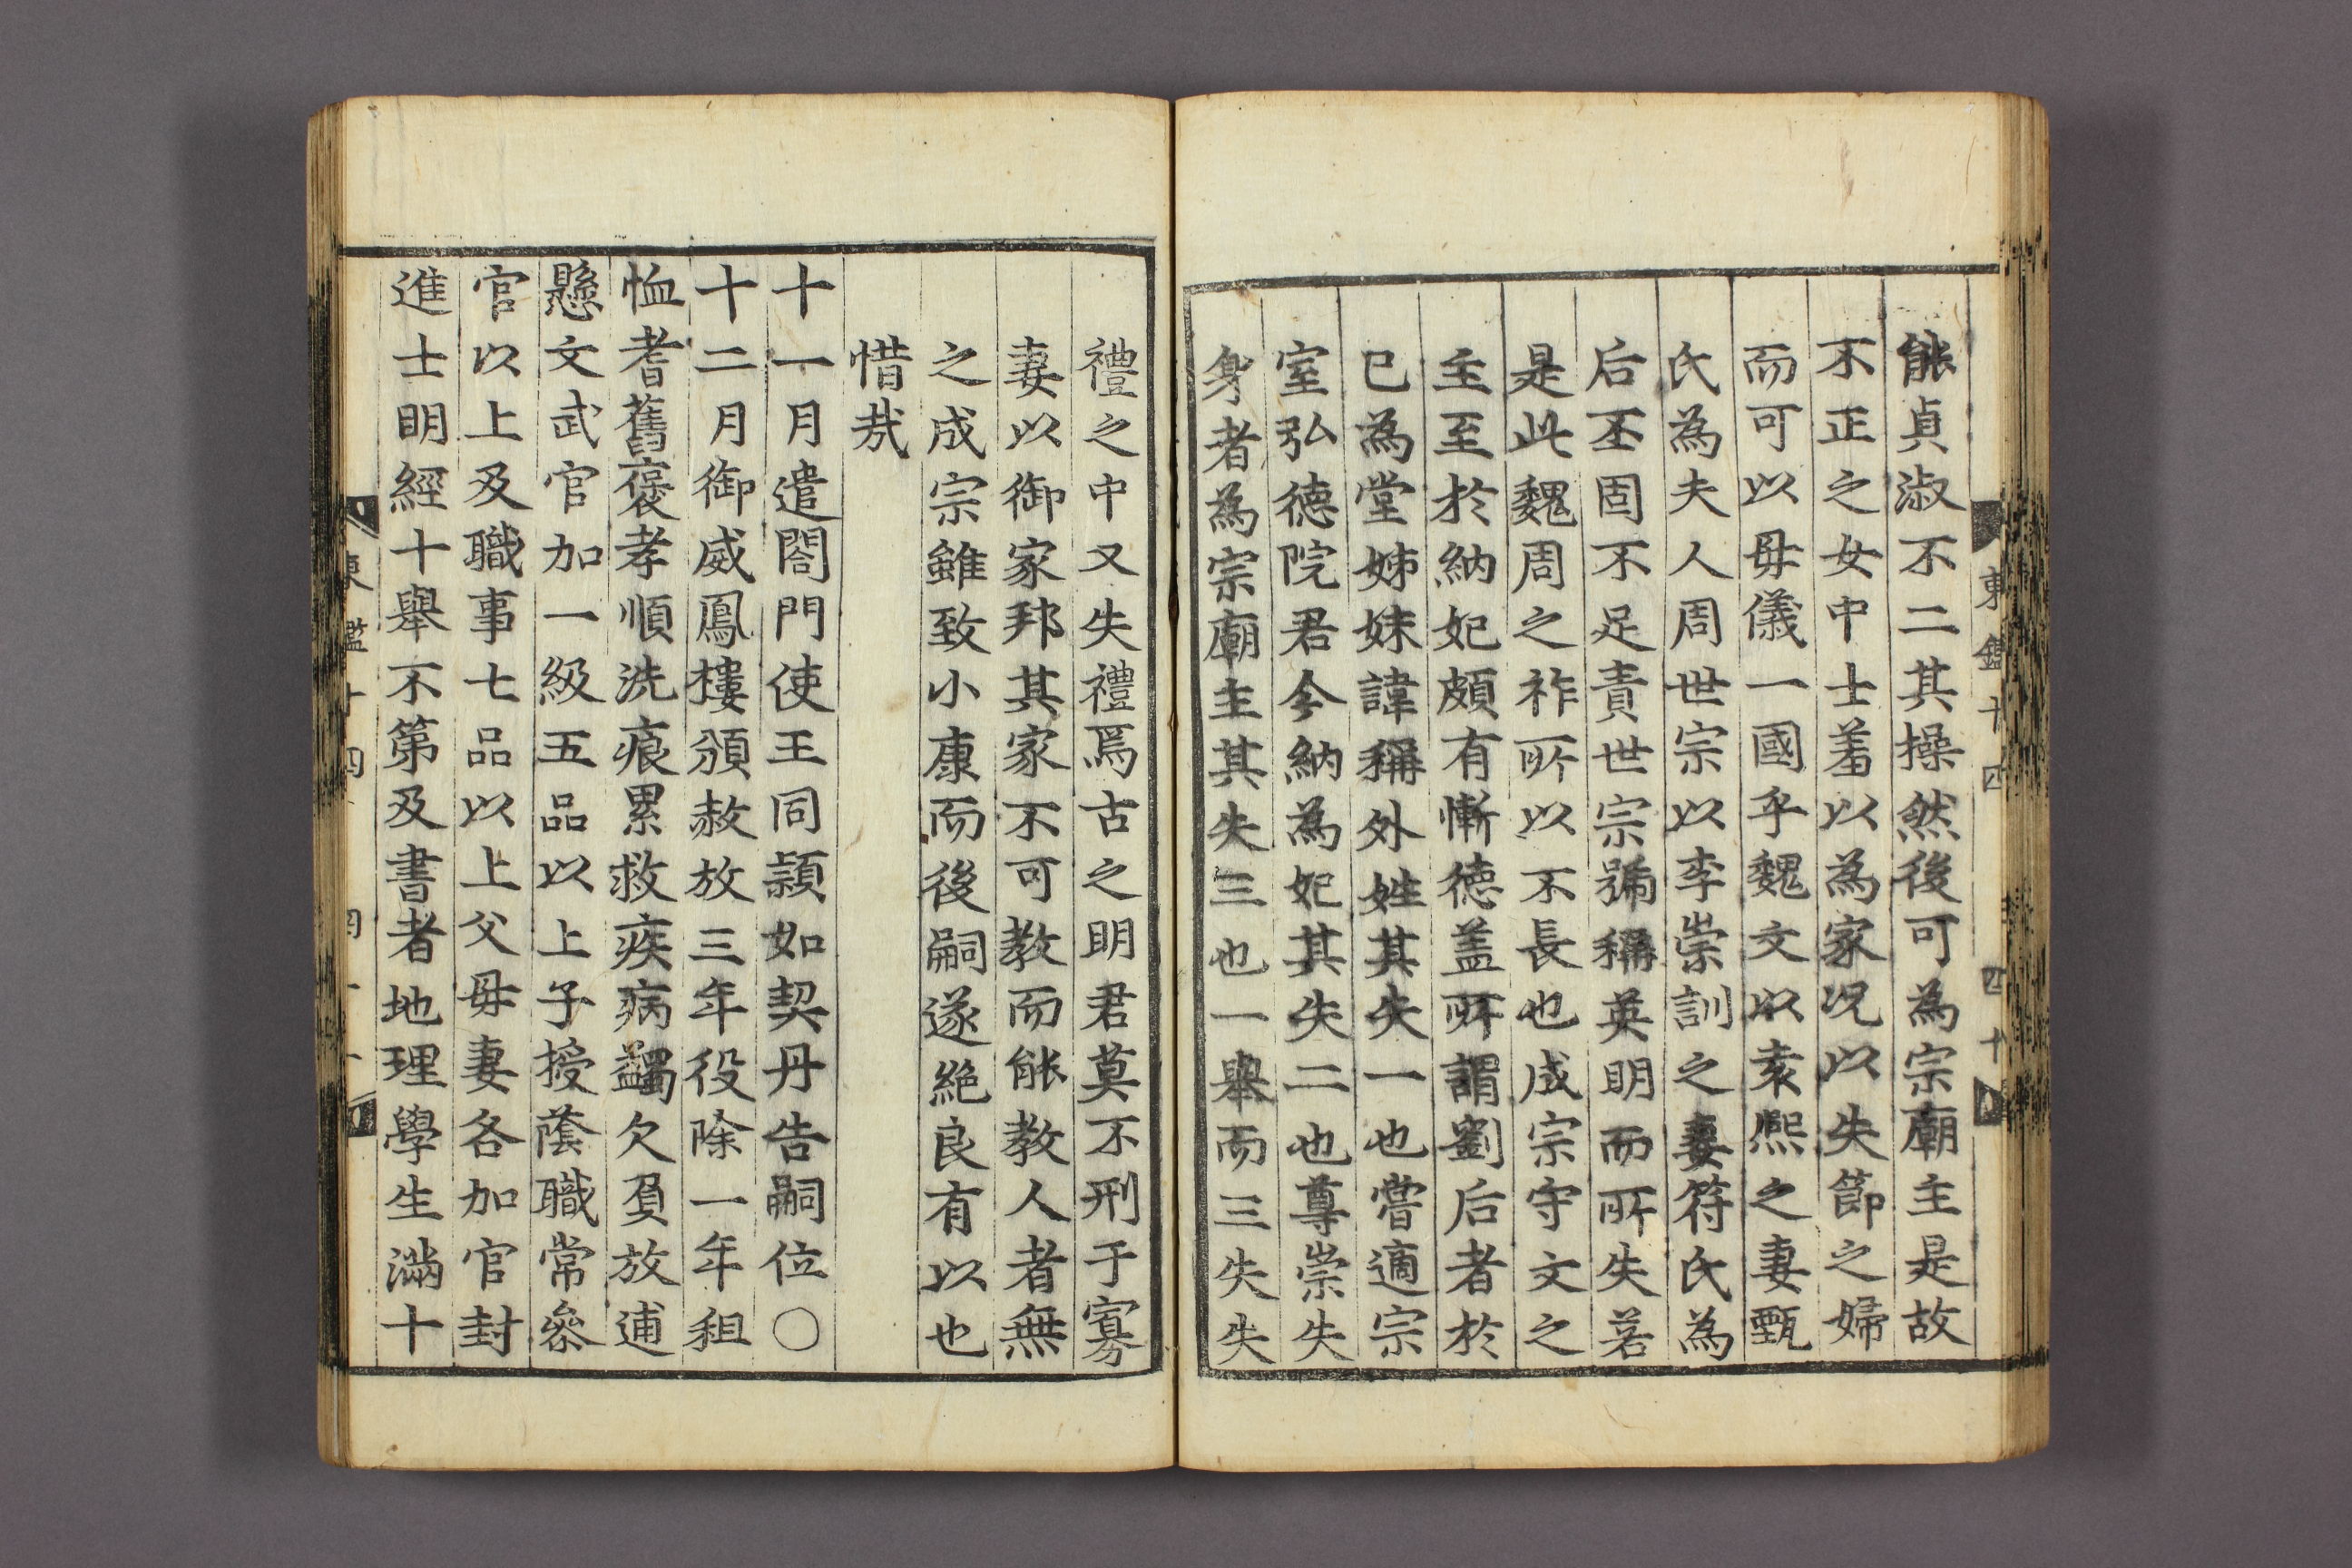 東鑑十四 四十
能貞淑不二其操然後可為宗廟主是故
不正之女中士羞以為家况以失節之婦
而可以毋儀一國乎魏文以袁熙之妻甄
氏為夫人周世宗以李崇訓之妻符氏為
后丕固不足責世宗號稱英明而所失若
是此魏周之祚所以不長也成宗守文之
主至於納妃頗有慚德盖所謂劉后者於
已為堂姊妹諱稱外姓其失一也嘗適宗
室弘德院君今納為妃其失二也尊崇失
身者為宗廟主其失三也一舉而三失失
禮之中又失禮焉古之明君莫不刑于寡
妻以御家邦其家不可教而能教人者無
之成宗雖致小康而後嗣遂絶良有以也
惜㦲
十一月遣閤門使王同穎如契丹告嗣位〇
十二月御威鳳樓頒赦放三年役除一年租
恤耆舊褒孝順洗痕累救疾病蠲欠負放逋
懸文武官加一級五品以上子授蔭職常叅
官以上及職事七品以上父毋妻各加官封
進士明經十舉不第及書者地理學生滿十
東鑑十四